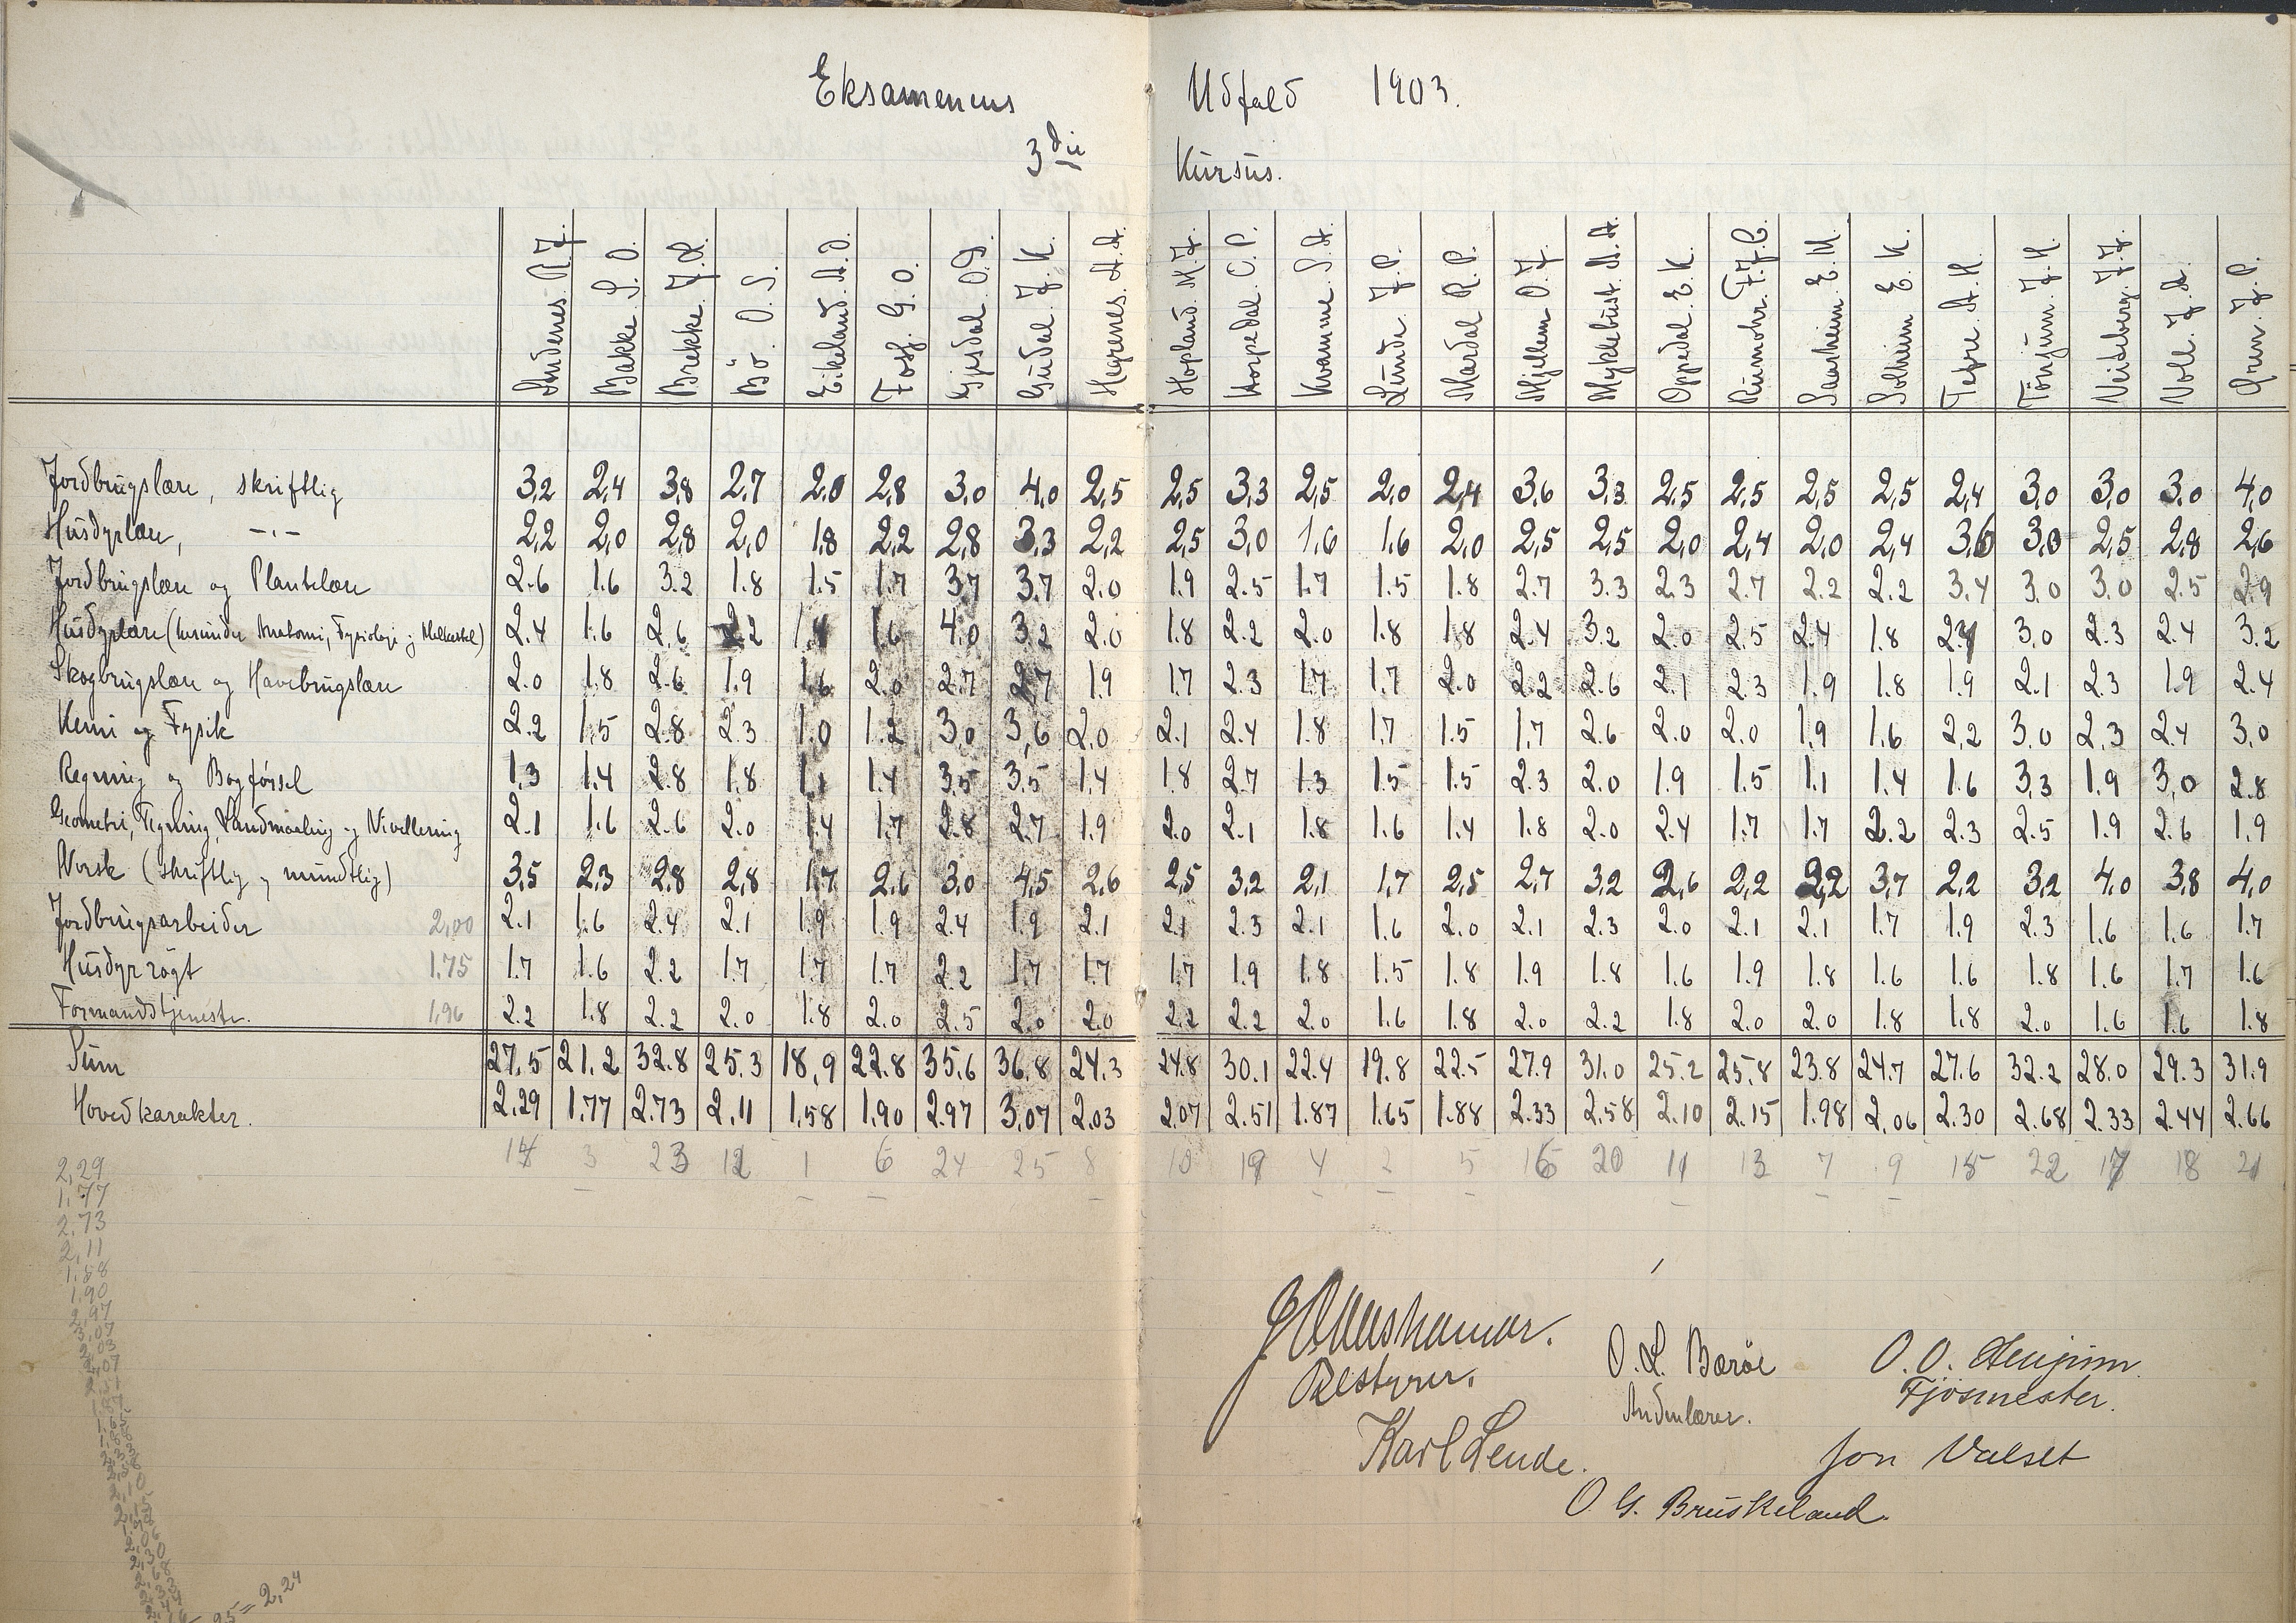 Eksamenens Udfald 1903.
3die Kursus.
Andenes. R. J. Bakke S. O. Brekke J. R. Bö. O. S. Eikeland. A. O. Foss. G. O. Gjesdal O. J. Gudal J. K. Hegrenes. A. A. Hopland. M. J. Korpedal O. P. Kvamme S. A. Lunde. J. P. Mardal R. P. Mjellem O. J. Myklebust. A. A. Oppedal E. K. Rumohr. F. J. C. Saarheim E. M. Solheim E. K. Tefre. A. H. Tönjum. J. H. Veiteberg. J. J. Voll. J. A. Gren. J. P.
Jordbrugslære, skriftlig 3,2 2,4 3,8 2,7 2,0 2,8 3,0 4,0 2,5 2,5 3,3 2,5 2,0 2,4 3,6 3,3 2,5 2,5 2,5 2,5 2,4 3,0 3,0 3,0 4,0
Husdyrlære, -"- 2,2 2,0 2,8 2,0 1,8 2,2 2,8 3,3 2,2 2,5 3,0 1,6 1,6 2,0 2,5 2,5 2,0 2,4 2,0 2,4 3,6 3,0 2,5 2,8 2,6
Jordbrugslære og Plantelære 2.6 1.6 3.2 1.8 1.5 1.7 3.7 3.7 2.0 1.9 2.5 1.7 1.5 1.8 2.7 3.3 2.3 2.7 2.2 2.2 3.4 3.0 3.0 2.5 2.9
Husdyrlære (herunder Anatomi, Fysiologi og Melkestel) 2.4 1.6 2.6 2.2 1.4 1.6 4.0 3.2 2.0 1.8 2.2 2.0 1.8 1.8 2.4 3.2 2.0 2.5 2.4 1.8 2.7 3.0 2.3 2.4 3.2
Skogbrugslære og Havebrugslære 2.0 1.8 2.6 1.9 1.6 2.0 2.7 2.7 1.9 1.7 2.3 1.7 1.7 2.0 2.2 2.6 2.1 2.3 1.9 1.8 1.9 2.1 2.3 1.9 2.4
Kemi og Fysik 2.2 1.5 2.8 2.3 1.0 1.2 3.0 3,6 2.0 2.1 2.4 1.8 1.7 1.5 1.7 2.6 2.0 2.0 1.9 1.6 2.2 3.0 2.3 2.4 3.0
Regning og Bogførsel 1.3 1.4 2.8 1.8 1.1 1.4 3.5 3.5 1.4 1.8 2.7 1.3 1.5 1.5 2.3 2.0 1.9 1.5 1.1 1.4 1.6 3.3 1.9 3,0 2.8
Geometri, Tegning, Landmaaling og Nivellering 2.1 1.6 2.6 2.0 1.4 1.7 2.8 2.7 1.9 2.0 2.1 1.8 1.6 1.4 1.8 2.0 2.4 1.7 1.7 2.2 2.3 2.5 1.9 2.6 1.9
Norsk (skriftlig og mundtlig) 3,5 2,3 2,8 2,8 1,7 2,6 3,0 4,5 2,6 2,5 3,2 2,1 1,7 2,5 2,7 3,2 2,6 2,2 2,2 3,7 2,2 3,2 4,0 3,8 4,0
Jordbrugsarbeider 2,00 2.1 1.6 2.4 2.1 1.9 1.9 2.4 1.9 2.1 2.1 2.3 2.1 1.6 2.0 2.1 2.3 2.0 2.1 2.1 1.7 1.9 2.3 1.6 1.6 1.7
Husdyrrögt 1,75 1.7 1.6 2.2 1.7 1.7 1.7 2.2 1.7 1.7 1.7 1.9 1.8 1.5 1.8 1.9 1.8 1.6 1.9 1.8 1.6 1.6 1.8 1.6 1.7 1.6
Formandstjeneste. 1,96 2.2 1.8 2.2 2.0 1.8 2.0 2.5 2.0 2.0 2.2 2.2 2.0 1.6 1.8 2.0 2.2 1.8 2.0 2.0 1.8 1.8 2.0 1.6 1.6 1.8
Sum 27,5 21.2 32.8 25.3 18,9 22.8 35.6 36.8 24.3 24.8 30.1 22.4 19.8 22.5 27.9 31.0 25.2 25.8 23.8 24.7 27.6 32.2 28.0 29.3 31.9
Hovedkarakter. 2.29 1.77 2.73 2,11 1,58 1,90 2.97 3,07 2.03 2.07 2.51 1.87 1.65 1.88 2.33 2.58 2.10 2.15 1.98 2.06 2.30 2.68 2.33 2.44 2.66
14 3 23 12 1 6 24 25 8 10 19 4 2 5 16 20 11 13 7 9 15 22 17 18 21
2,29
1,77
2,73
2,11
1,58
1,90
2,97
3,07
2,03
2,07
25 = 2,24
Bestyrer.
O. L. Bærøe
Andenlærer.
O. O.
Fjösmester.
Karl Lende.
Jon Valset
O G. Bruskeland.